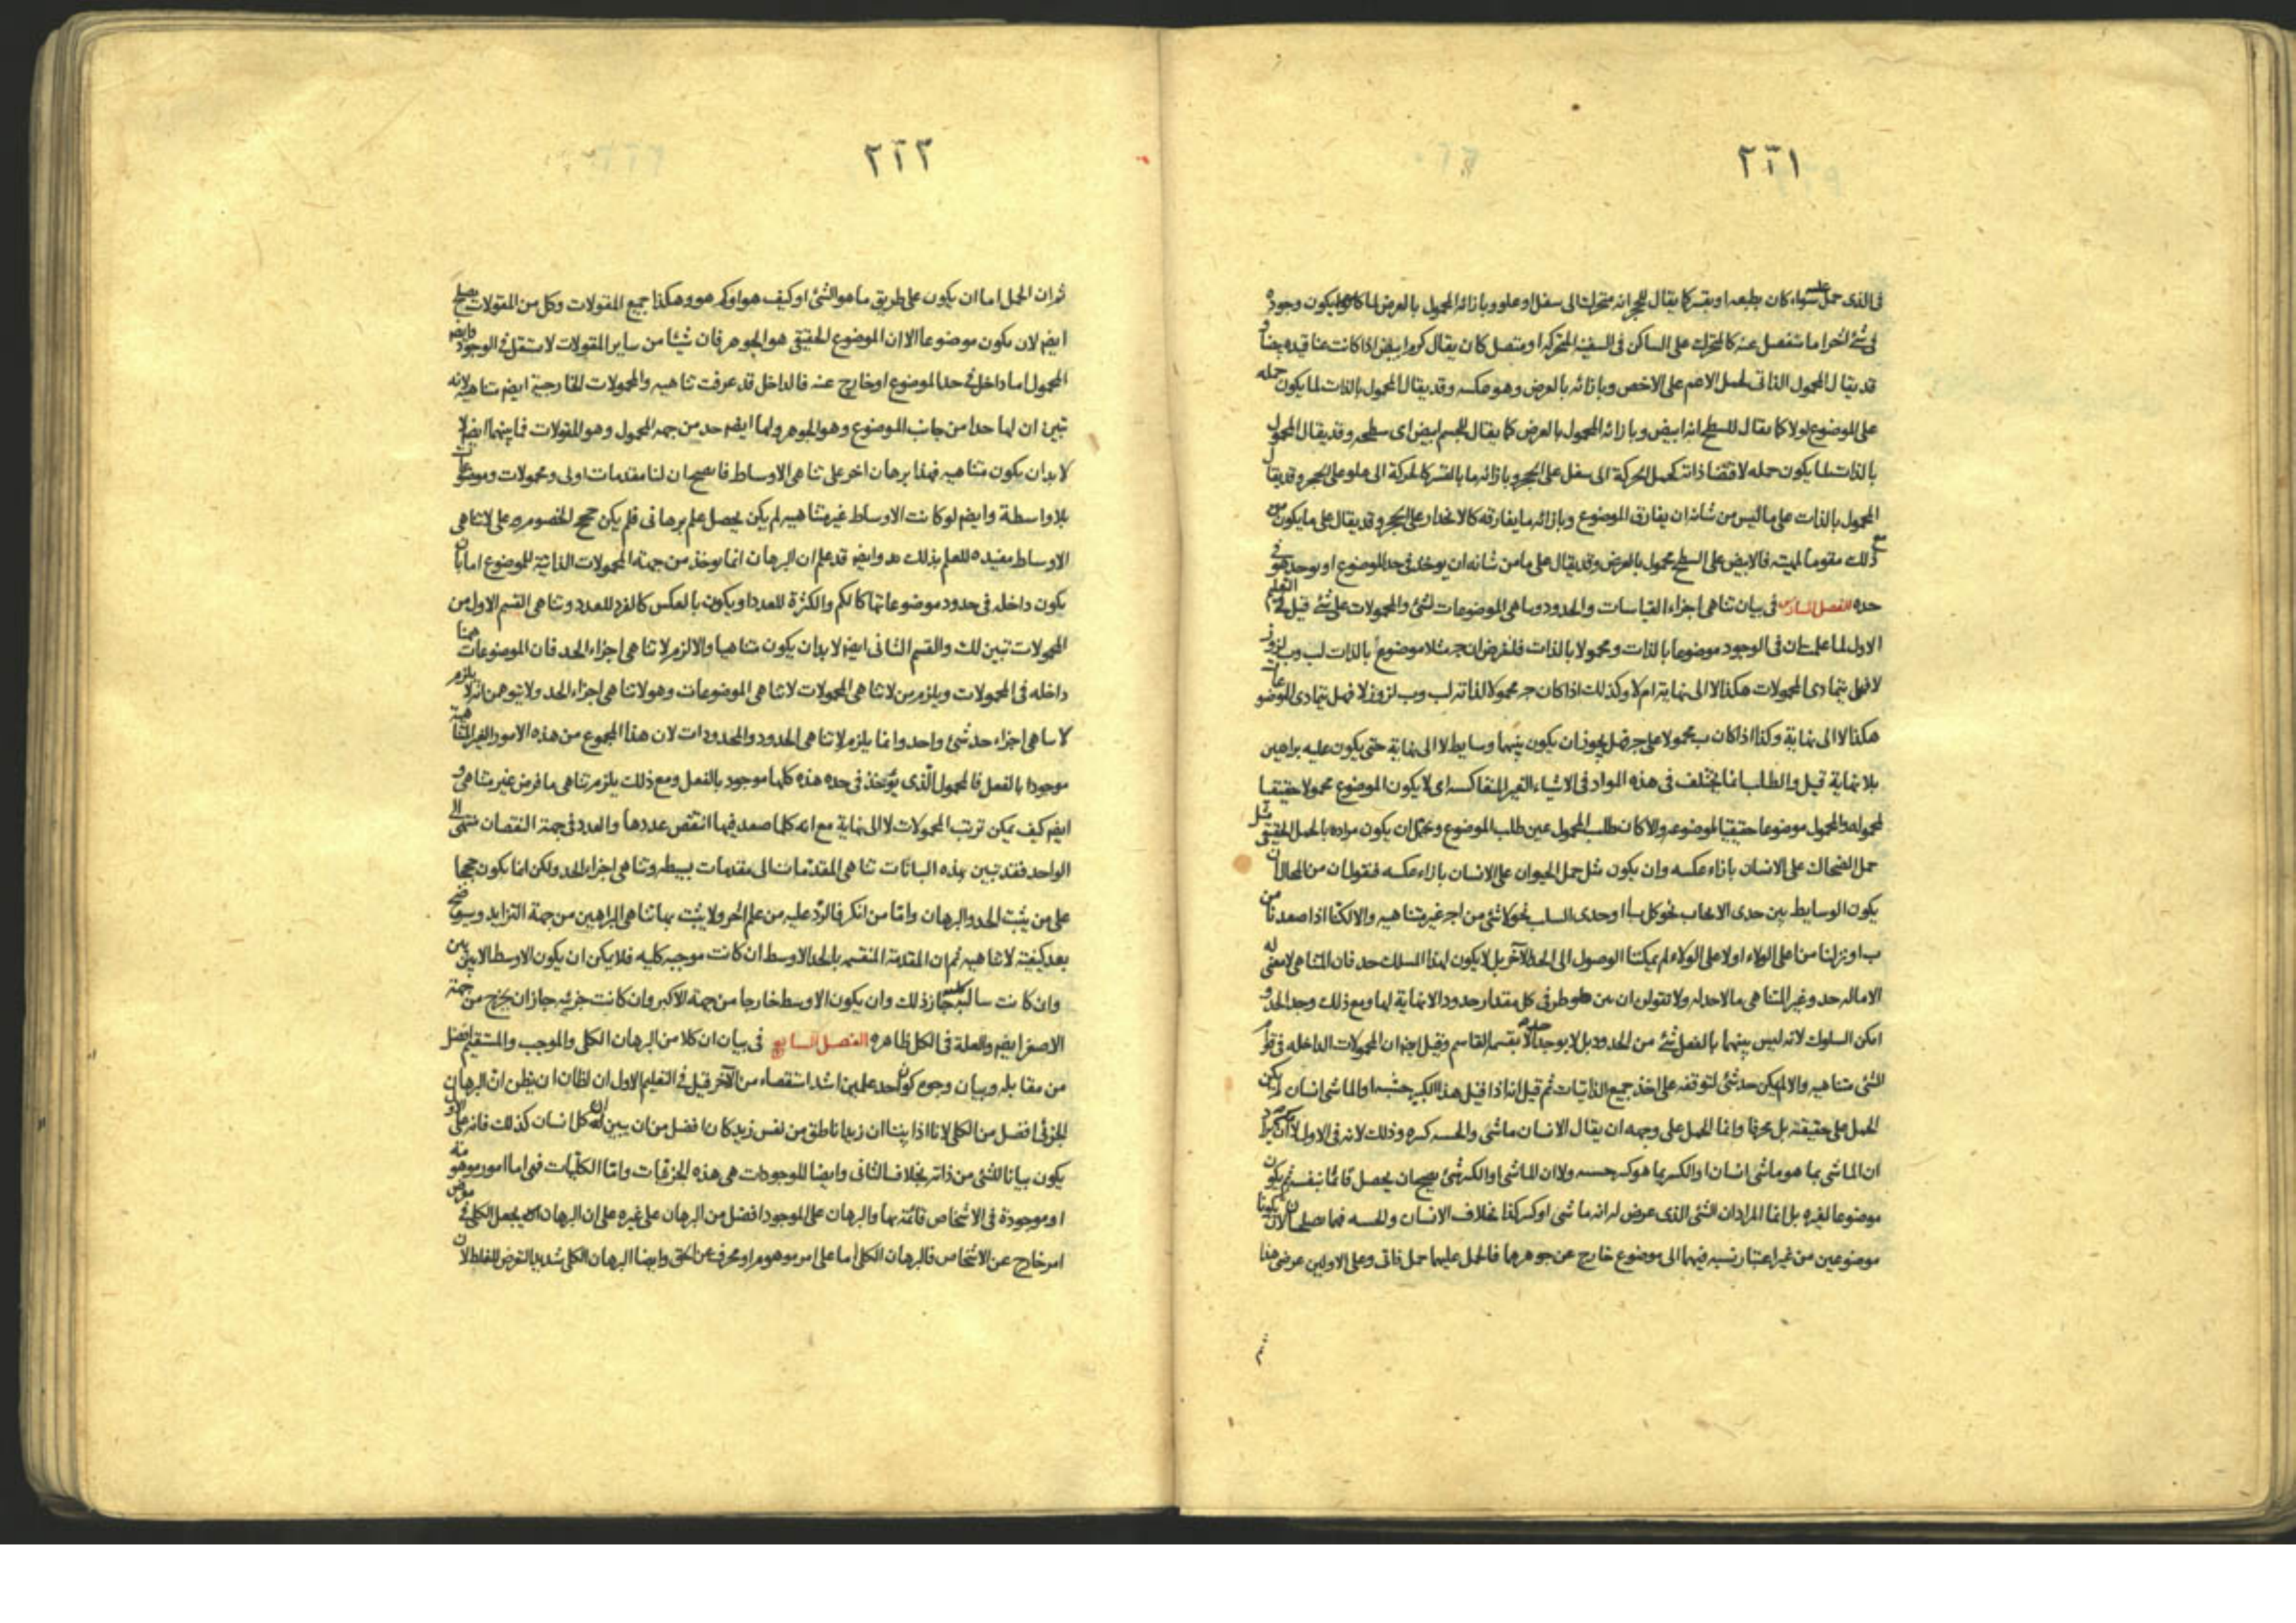 ٢٦١
فى الذى حمل عليه سواء كان بطبعه او بقسر كما يقال للحجر انه متحرك الى سفل او علو وبازائه المحمول بالعرض لما يكون وجوده
فى شئ آخر اما منفصل عنه كالمتحرك على الساكن فى السفينة المتحركة او متصل كان يقال كرم ابيض اذا كانت عناقيده بيضا و
قد يقال المحمول الذاتى لحمل الاعم على الاخص وبازائه بالعرض وهو عكسه وقد يقال المحمول بالذات لما يكون حمله
على الموضوع اولا كما يقال للسطح انه ابيض وبازائه المحمول بالعرض كما يقال للجسم ابيض اى سطحه وقد يقال المحمول
بالذات لما يكون حمله لاقتضا ذاته كحمل الحركة الى سفل على الحجر وبازائه ما بالقسر كالحركة الى علو على الحجر وقد يقال
المحمول بالذات على ما ليس من شانه ان يفارق الموضوع وبازائه ما يفارقه كالانحدار على الحجر وقد يقال على ما يكون مع
ذلك مقوما لمهيته فالابيض على السطح محمول بالعرض وقد يقال على ما من شانه ان يوخذ فى حد الموضوع او يوخذ هو فى
حده الفصل السادس فى بيان تناهى اجزاء القياسات والحدود وما هى الموضوعات لشئ والمحمولات على شئ قيل فى التعليم
الاول لما علمت ان فى الوجود موضوعا بالذات ومحمولا بالذات فلنفرض ان ج مثلا موضوع بالذات لب وب لز وز
لا فهل يتمادى المحمولات هكذا لا الى نهاية ام لا وكذلك اذا كان ج محمولا لذاته لب وب لز وز لا فهل يتمادى الموضوعات
هكذا لا الى نهاية وكذا اذا كان ب محمولا على ج فهل يجوز ان يكون بينهما وسايط لا الى نهاية حتى يكون عليه براهين
بلا نهاية قيل والطلب انما يختلف فى هذه المواد فى الاشياء الغير المنعاكسة اى لا يكون الموضوع محمولا حقيقيا
لمحموله والمحمول موضوعا حقيقيا لموضوعه والا كان طلب المحمول عين طلب الموضوع ويحتمل ان يكون مراده بالحمل الحقيقى مثل
حمل الضحاك على الانسان بازاء عكسه وان يكون مثل حمل الحيوان على الانسان بازاء عكسه فنقول ان من المحال ان
يكون الوسايط بين حدى الايجاب نحو كل ب ا وحدى السلب نحو لا شئ من ا ج غير متناهيه والا لكنا اذا صعدنا من
ب او نزلنا من ا على الولاء او لا على الولاء لم يمكننا الوصول الى الحد الآخر بل لا يكون لهذا السلك حد فان المتناهى لا معنى له
الا ماله حد وغير المتناهى ما لا حد له ولا تقولن ان بين طرفى كل مقدار حدودا لا نهاية لها ومع ذلك وجد الحد و
امكن السلوك لانه ليس بينهما بالفعل شئ من الحدود بل لا يوجد الا بقسمة القاسم وقيل ايضا ان المحمولات الداخله فى قوام
الشئ متناهيه والا لم يكن حد شئ لتوقفه على اخذ جميع الذاتيات ثم قيل انه اذا قيل هذا الكبير خشبه او الماشى انسان لم يكن
الحمل على حقيقته بل محرفا وانما الحمل على وجهه ان يقال الانسان ماشى والخشبه كبيره وذلك لانه فى الاول لا يراد
ان الماشى بما هو ماشى انسان او الكبير بما هو كبير خشبه ولا ان الماشى او الكبير شئ يصح ان يحصل قائما بنفسه ثم يكون
موضوعا لغيره بل انما المراد ان الشئ الذى عرض له انه ماشى او كبير كذا بخلاف الانسان والخشبه فهما يصلحان لان يكونا
موضوعين من غير اعتبار نسبه فيهما الى موضوع خارج عن جوهرهما فالحمل عليهما حمل ذاتى وعلى الاولين عرضى هذا
ثم
٢٦٢
ثم ان الحمل اما ان يكون على طريق ما هو الشئ او كيف هو او كم هو وهكذا جميع المقولات وكل من المقولات يصلح
ايضا لان يكون موضوعا الا ان الموضوع الحقيقى هو الجوهر فان شيئا من ساير المقولات لا يستقل فى الوجود وايضا
المحمول اما داخل فى حد الموضوع او خارج عنه فالداخل قد عرفت تناهيه والمحمولات الخارجية ايضا متناهية لانه
تبين ان لها حدا من جانب الموضوع وهو الجوهر ولها ايضا حد من جهة المحمول وهو المقولات فما بينهما ايضا
لا بد ان يكون متناهيه فهذا برهان اخر على تناهى الاوساط فاصح ان لنا مقدمات اولى ومحمولات وموضوعات
بلا واسطة وايضا لو كانت الاوساط غير متناهيه لم يكن يحصل علم برهانى فلم يكن حجج الخصوم على لا تناهى
الاوساط مفيده للعلم بذلك هف وايضا قد علم ان البرهان انما يوخذ من جهة المحمولات الذاتية للموضوع اما بان
يكون داخله فى حدود موضوعاتها كالكم والكثرة للعدد او يكون بالعكس كالفرد للعدد وتناهى القسم الاول من
المحمولات تبين لك والقسم الثانى ايضا لا بد ان يكون متناهيا والا لزم لا تناهى اجزاء الحد فان الموضوعات ههنا
داخله فى المحمولات ويلزم من لا تناهى المحمولات لا تناهى الموضوعات وهو لا تناهى اجزاء الحد ولا يتوهمن انه لا يلزم
لا تناهى اجزاء حد شئ واحد وانما يلزم لا تناهى الحدود والمحدودات لان هذا المجموع من هذه الامور الغير المتناهية
موجودا بالفعل فالمحمول الذى يؤخذ فى حده هذه كلها موجود بالفعل ومع ذلك يلزم تناهى ما فرض غير متناهى و
ايضا كيف يمكن ترتيب المحمولات لا الى نهاية مع انه كلما صعد فيها انتقص عددها والعدد فى جهة النقصان منتهى الى
الواحد فقد تبين بهذه البيانات تناهى المقدمات الى مقدمات بسيطه وتناهى اجزاء الحد ولكن انما يكون حججا
على من يثبت الحد والبرهان واما من انكر فالرد عليه من علم آخر ولا يثبت بها تناهى البراهين من جهة التزايد وسيوضح
بعد كيفية لا تناهيه ثم ان المقدمة المنقسمة بالحد الاوسط ان كانت موجبه كليه فلا يمكن ان يكون الاوسط الا بين بين
وان كانت سالبة كليه جاز ذلك وان يكون الاوسط خارجا من جهة الاكبر وان كانت جزئيه جاز ان يخرج من جهة
الاصغر ايضا والعلة فى الكل ظاهره الفصل السابع فى بيان ان كلا من البرهان الكلى والموجب والمستقيم افضل
من مقابله وبيان وجوه كون احد علمين اشد استقصاء من الآخر قيل فى التعليم الاول ان لظان ان يظن ان البرهان
الجزئى افضل من الكلى لانا اذا بينا ان زيدا ناطق من نفس زيد كان افضل من ان يبين ان كل انسان كذلك فانه على الاول
يكون بيانا للشئ من ذاته بخلاف الثانى وايضا الموجودات هى هذه الجزئيات واما الكليات فهى اما امور موهومة
او موجودة فى الاشخاص قائمة بها والبرهان على الموجود افضل من البرهان على غيره على ان البرهان يجعل الكلى فى معرض
امر خارج عن الاشخاص فالبرهان الكلى اما على امر موهوم او محرف عن الحق وايضا البرهان الكلى شديد التعرض للغلط لان